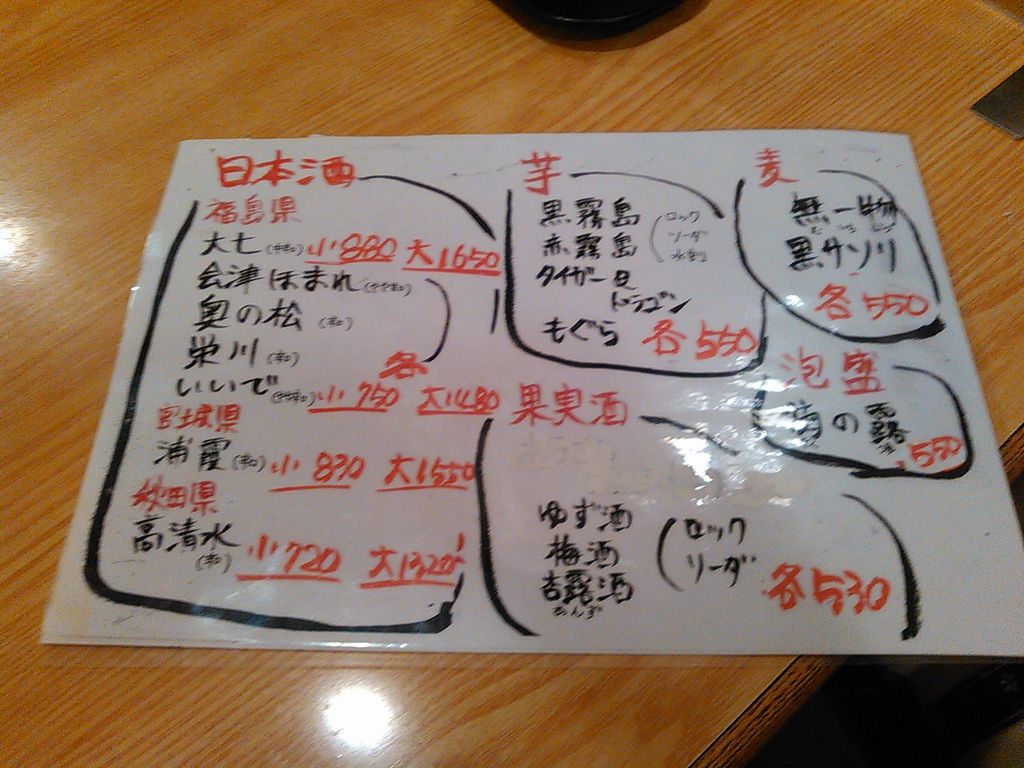 日本酒
福島県
大七 小880 大1650
会津ほまれ
奥の松
栄川
いいで 各 小750 大1480
宮城県
浦霞 小 830 大1550
秋田県
高清水 小720 大1320
芋
黒霧島 ロック
赤霧島 ソーダ
タイガー& 水割
ドラゴン
もぐら 各550
麦
無一物
黒サソリ
各550
泡盛
の露
550
果実酒
ゆず酒 ロック
梅酒 ソーダ
杏露酒
あんず
各530